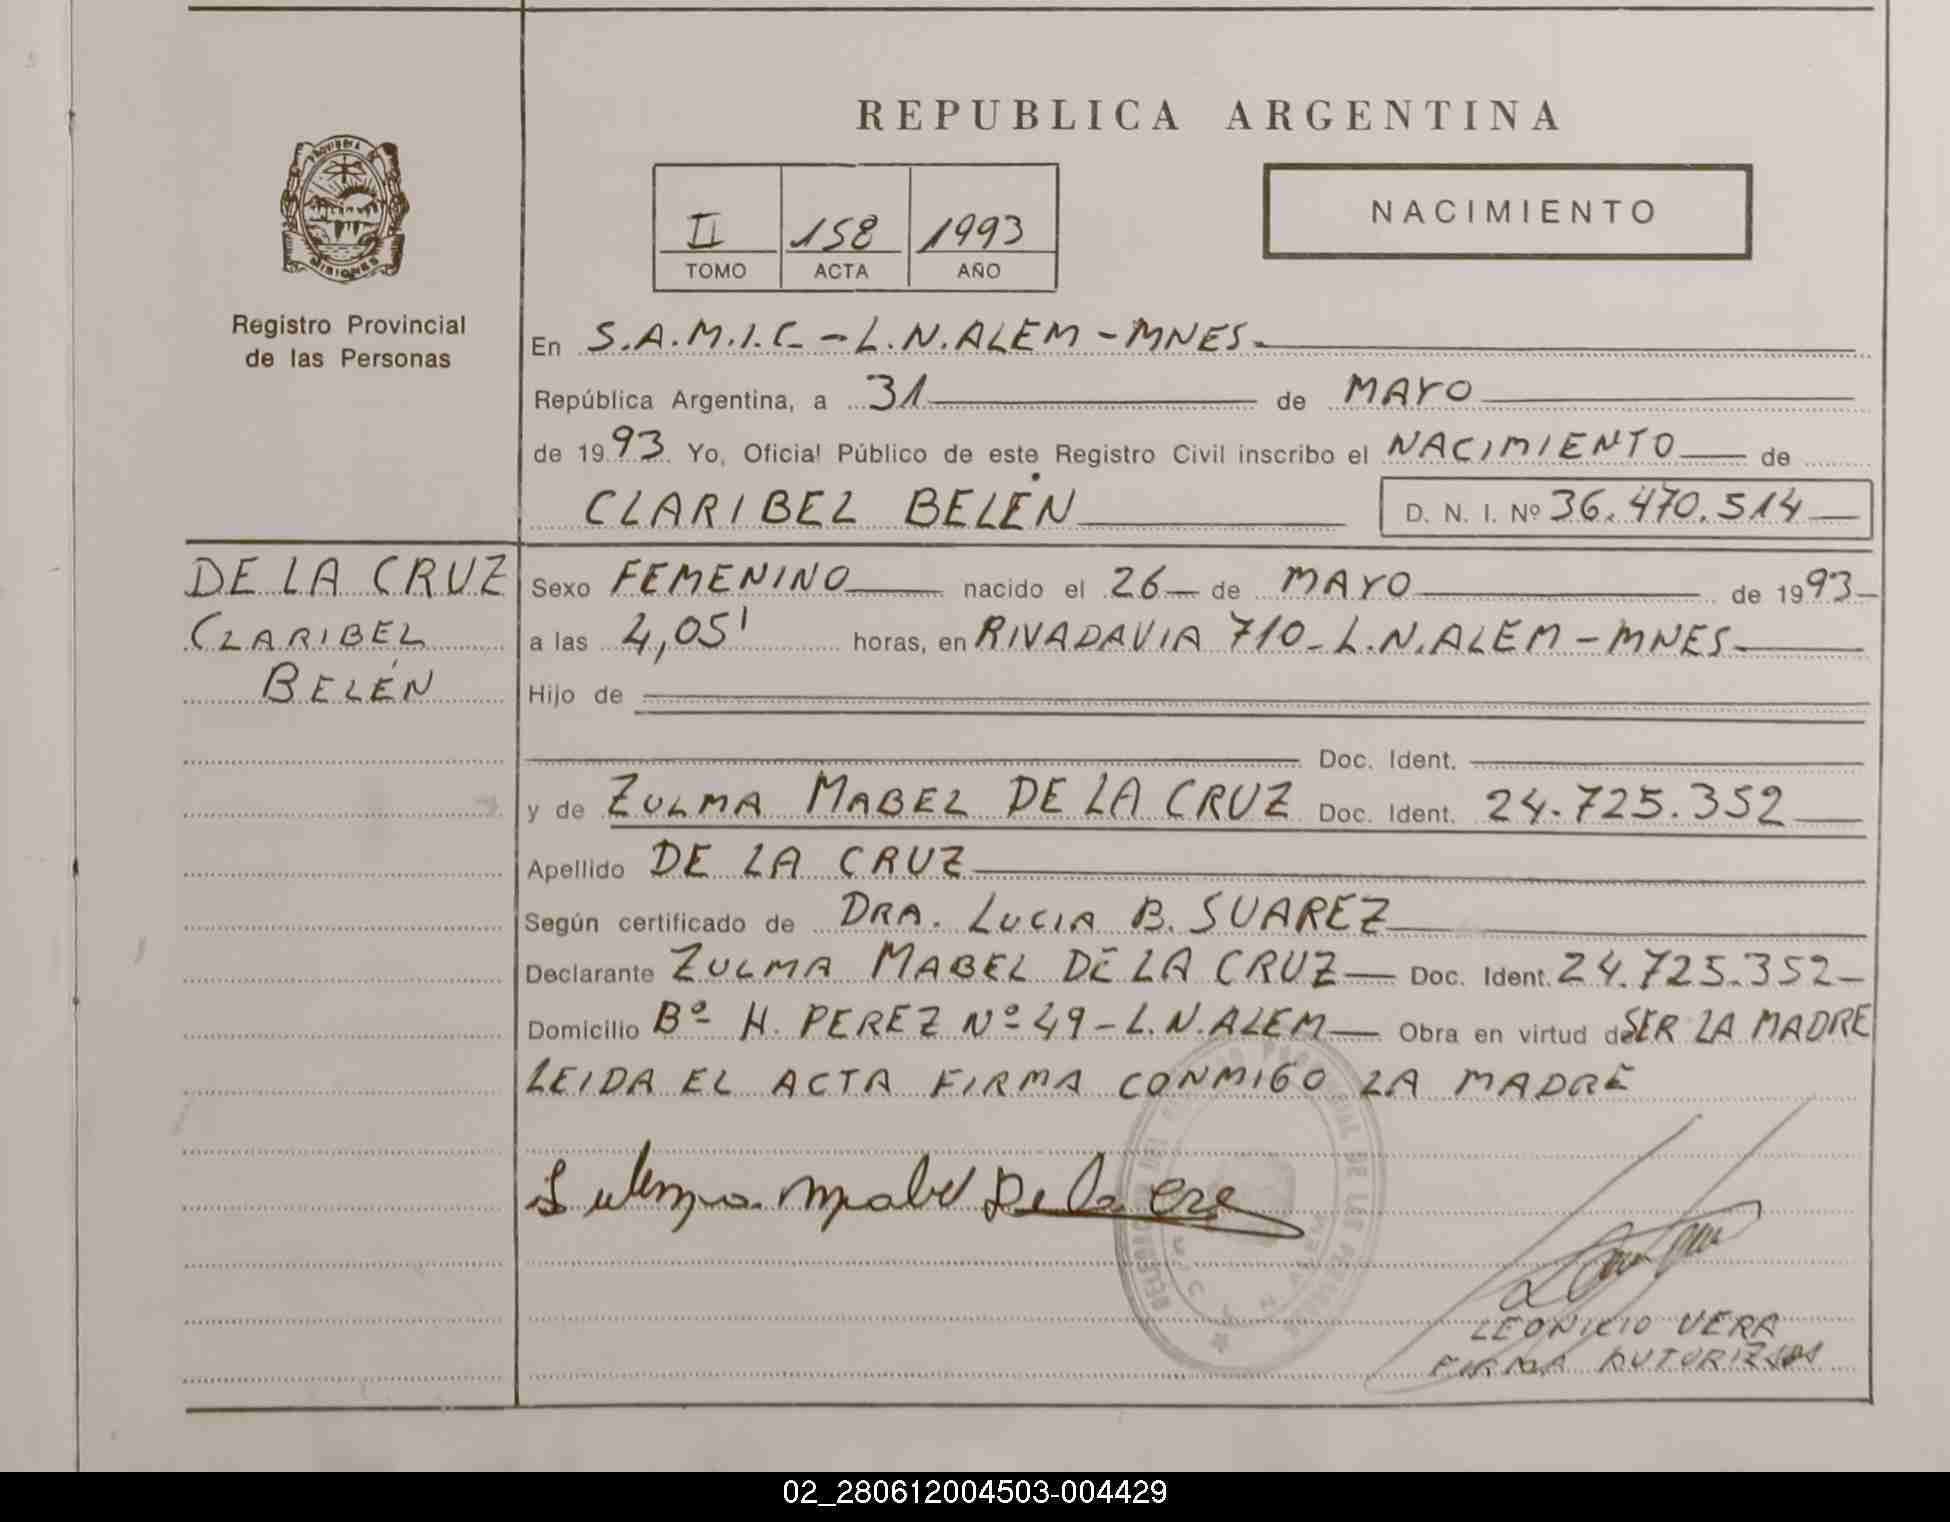 REPUBLICA ARGENTINA
PROVINCIA DE
MISIONES
Registro Provincial
de las Personas
II 158 1993
TOMO ACTA AÑO
NACIMIENTO
En S.A.M.I.C. - L.N. ALEM - MNES-
República Argentina, a 31 de MAYO
de 1993 Yo, Oficial Público de este Registro Civil inscribo el NACIMIENTO de
CLARIBEL BELÉN D. N. I. Nº 36.470.514
DE LA CRUZ
CLARIBEL
BELÉN
Sexo FEMENINO nacido el 26 de MAYO de 1993
a las 4,05' horas, en RIVADAVIA 710 - L.N. ALEM - MNES
Hijo de
Doc. Ident.
y de ZULMA MABEL DE LA CRUZ Doc. Ident. 24.725.352
Apellido DE LA CRUZ
Según certificado de DRA. LUCIA B. SUAREZ
Declarante ZULMA MABEL DE LA CRUZ Doc. Ident. 24.725.352
Domicilio Bº H. PEREZ Nº 49 - L.N. ALEM Obra en virtud de SER LA MADRE
LEIDA EL ACTA FIRMA CONMIGO LA MADRE
Zulma Mabel De la Cruz
LEONICIO VERA
FIRMA AUTORIZADA
02_280612004503-004429